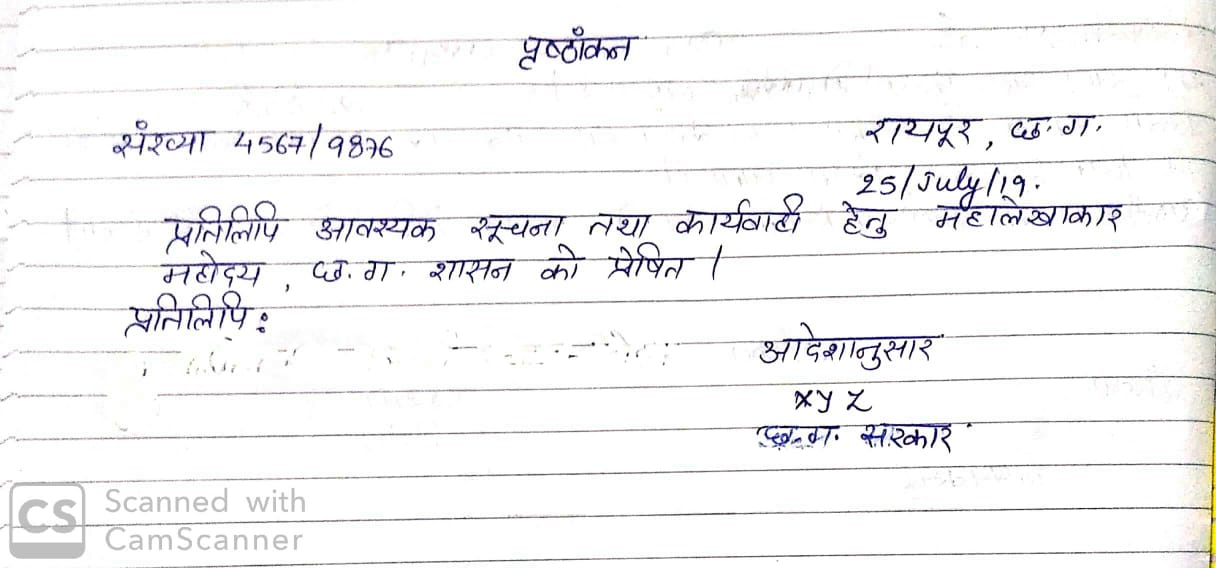 पृष्ठाँकन
संख्या 4567/9876
रायपूर, छ. ग.
25/July/19.
प्रतिलिपि आवश्यक सूचना तथा कार्यवाही हेतु महालेखाकार
महोदय, छ. ग. शासन को प्रेषित।
प्रतिलिपि:
आदेशानुसार
xyz
छ. ग. सरकार
CS Scanned with
CamScanner